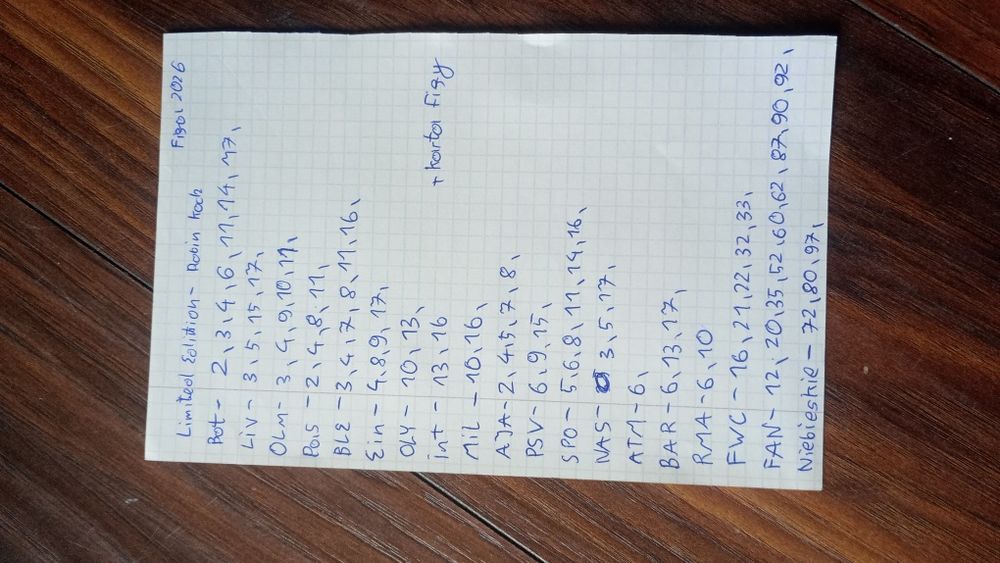 Limited Edition - Robin Koch
Bot - 2, 3, 4, 6, 11, 14, 17,
LIV - 3, 5, 15, 17,
OLM - 3, 4, 9, 10, 11,
PaiS - 2, 4, 8, 11,
BLE - 3, 4, 7, 8, 11, 16,
Ein - 4, 8, 9, 17,
OLY - 10, 13,
Int - 13, 16
+ karta Figy
MiL - 10, 16,
AJA - 2, 4, 5, 7, 8,
PSV - 6, 9, 15,
SPO - 5, 6, 8, 11, 14, 16,
NAS - 3, 5, 17,
ATM - 6,
BAR - 6, 13, 17,
RMA - 6, 10
FWC - 16, 21, 22, 32, 33,
FAN - 12, 20, 35, 52, 60, 62, 87, 90, 92,
Niebieskie - 72, 80, 97,